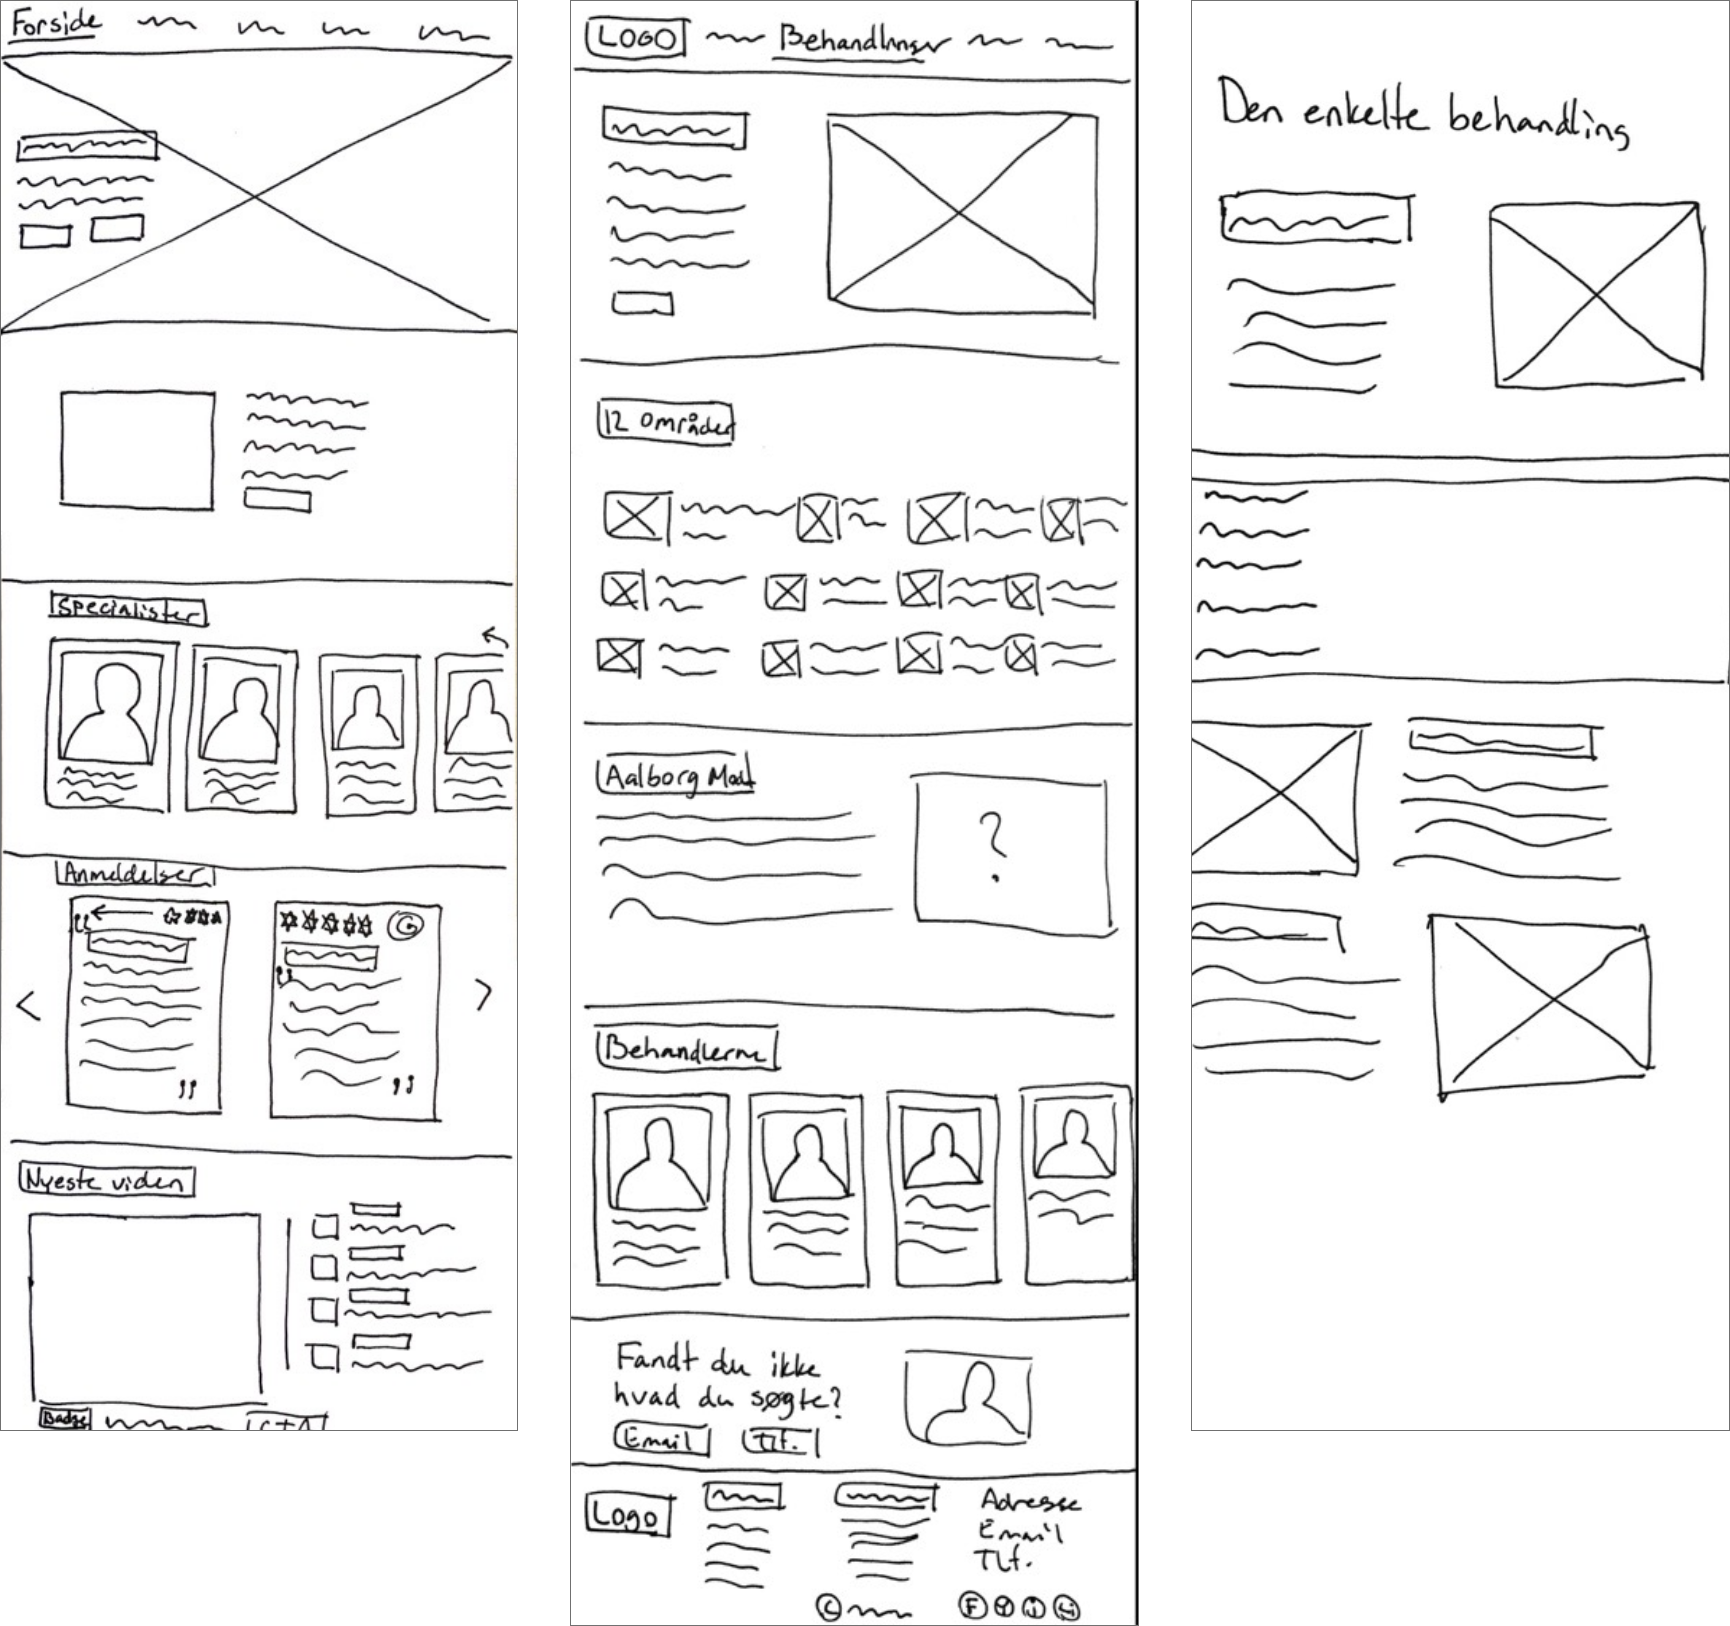 Forside
Specialister
Anmeldelser
G
Nyeste viden
Badge
CTA
LOGO
Behandlinger
12 områder
Aalborg Mod
?
Behandlerne
Fandt du ikke
hvad du søgte?
Email
Tlf.
Logo
Adresse
Email
Tlf.
©
F
Den enkelte behandling